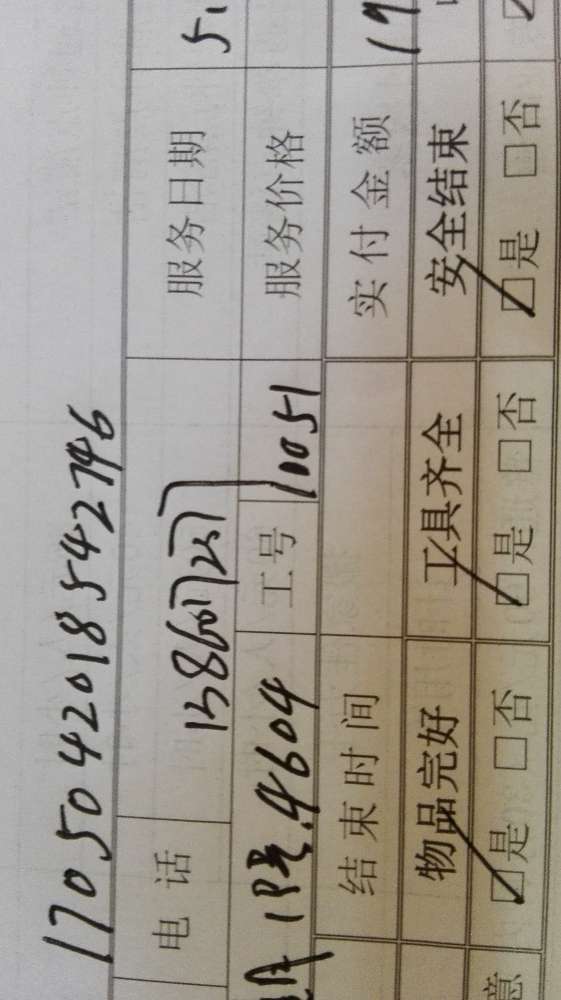 1705042018542746
电话 服务日期 5.
4604 工号 10051 服务价格
结束时间 实付金额 19
物品完好 工具齐全 安全结束
☑是 □否 ☑是 □否 ☑是 □否
意